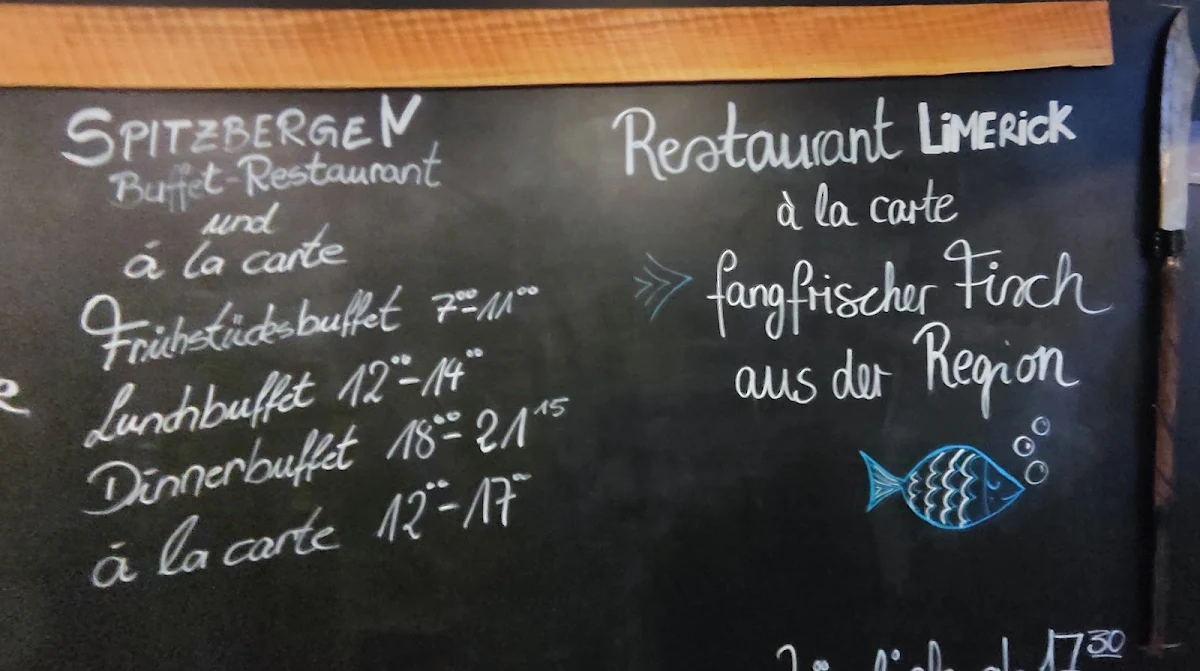 SPITZBERGEN
Buffet-Restaurant
und
á la carte
Frühstücksbuffet 7⁰⁰-11⁰⁰
Lunchbuffet 12⁰⁰-14⁰⁰
Dinnerbuffet 18⁰⁰-21¹⁵
á la carte 12⁰⁰-17⁰⁰
Restaurant LiMERiCK
à la carte
fangfrischer Fisch
aus der Region
17³⁰